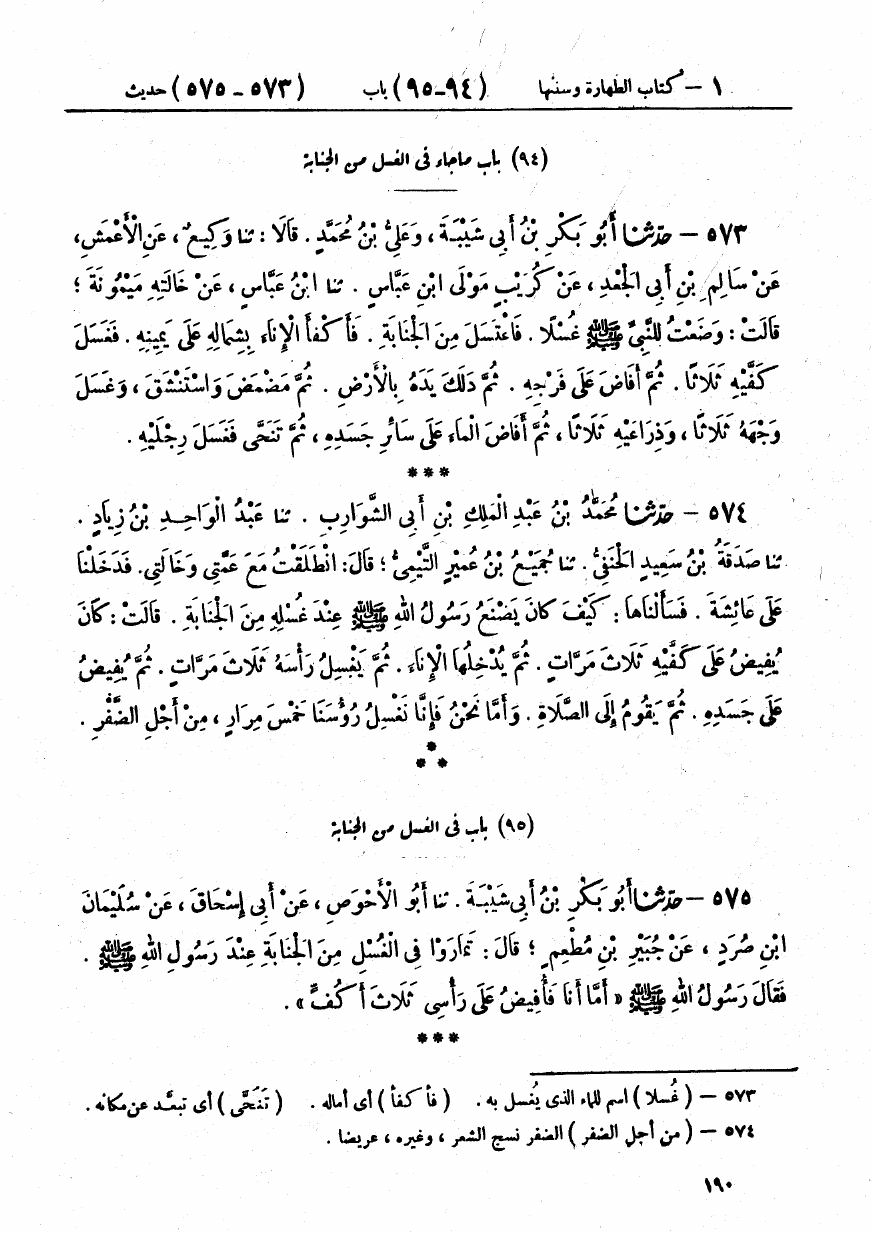 ١ – كتاب الطهارة وسننها (٩٤-٩٥) باب (٥٧٣ - ٥٧٥) حديث
(٩٤) باب ماجاء فى الغسل من الجنابة
٥٧٣ – حدّثنا أَبُو بَكْرِ بْنُ أَبِى شَيْبَةَ ، وَعَلِىُّ بْنُ مُحَمَّدٍ . قَالَا : ثنا وَكِيعٌ ، عَنِ الْأَعْمَشِ ،
عَنْ سَالِمِ بْنِ أَبِى الْجَعْدِ ، عَنْ كُرَيْبٍ مَوْلَى ابْنِ عَبَّاسٍ . ثنا ابْنُ عَبَّاسٍ ، عَنْ خَالَتِهِ مَيْمُونَةَ ؛
قَالَتْ : وَضَعْتُ لِلنَّبِىِّ ﷺ غُسْلًا . فَاغْتَسَلَ مِنَ الْجَنَابَةِ . فَأَكْفَأَ الْإِنَاءَ بِشِمَالِهِ عَلَى يَمِينِهِ . فَغَسَلَ
كَفَّيْهِ ثَلَاثًا . ثُمَّ أَفَاضَ عَلَى فَرْجِهِ . ثُمَّ دَلَكَ يَدَهُ بِالْأَرْضِ . ثُمَّ مَضْمَضَ وَاسْتَنْشَقَ ، وَغَسَلَ
وَجْهَهُ ثَلَاثًا ، وَذِرَاعَيْهِ ثَلَاثًا ، ثُمَّ أَفَاضَ الْمَاءَ عَلَى سَائِرِ جَسَدِهِ ، ثُمَّ تَنَحَّى فَغَسَلَ رِجْلَيْهِ .
***
٥٧٤ – حدّثنا مُحَمَّدُ بْنُ عَبْدِ الْمَلِكِ بْنِ أَبِى الشَّوَارِبِ . ثنا عَبْدُ الْوَاحِدِ بْنُ زِيَادٍ .
ثنا صَدَقَةُ بْنُ سَعِيدٍ الْحَنَفِىُّ . ثنا جُمَيْعُ بْنُ عُمَيْرٍ التَّيْمِىُّ ؛ قَالَ : انْطَلَقْتُ مَعَ عَمَّتِى وَخَالَتِى . فَدَخَلْنَا
عَلَى عَائِشَةَ . فَسَأَلْنَاهَا : كَيْفَ كَانَ يَصْنَعُ رَسُولُ اللهِ ﷺ عِنْدَ غُسْلِهِ مِنَ الْجَنَابَةِ . قَالَتْ : كَانَ
يُفِيضُ عَلَى كَفَّيْهِ ثَلَاثَ مَرَّاتٍ . ثُمَّ يُدْخِلُهَا الْإِنَاءَ . ثُمَّ يَغْسِلُ رَأْسَهُ ثَلَاثَ مَرَّاتٍ . ثُمَّ يُفِيضُ
عَلَى جَسَدِهِ . ثُمَّ يَقُومُ إِلَى الصَّلَاةِ . وَأَمَّا نَحْنُ فَإِنَّا نَغْسِلُ رُؤُسَنَا خَمْسَ مِرَارٍ ، مِنْ أَجْلِ الضَّفْرِ .
***
(٩٥) باب فى الغسل من الجنابة
٥٧٥ – حدّثنا أَبُو بَكْرِ بْنُ أَبِى شَيْبَةَ . ثنا أَبُو الْأَحْوَصِ ، عَنْ أَبِى إِسْحَاقَ ، عَنْ سُلَيْمَانَ
ابْنِ صُرَدٍ ، عَنْ جُبَيْرِ بْنِ مُطْعِمٍ ؛ قَالَ : تَمَارَوْا فِى الْغُسْلِ مِنَ الْجَنَابَةِ عِنْدَ رَسُولِ اللهِ ﷺ .
فَقَالَ رَسُولُ اللهِ ﷺ « أَمَّا أَنَا فَأُفِيضُ عَلَى رَأْسِى ثَلَاثَ أَكُفٍّ » .
***
٥٧٣ – ( غُسلا ) اسم للماء الذى يُغسل به . ( فأكفأ ) أى أماله . ( تَنَحَّى ) أى تبعَّد عن مكانه .
٥٧٤ – ( من أجل الضفر ) الضفر نسج الشعر ، وغيره ، عريضا .
١٩٠